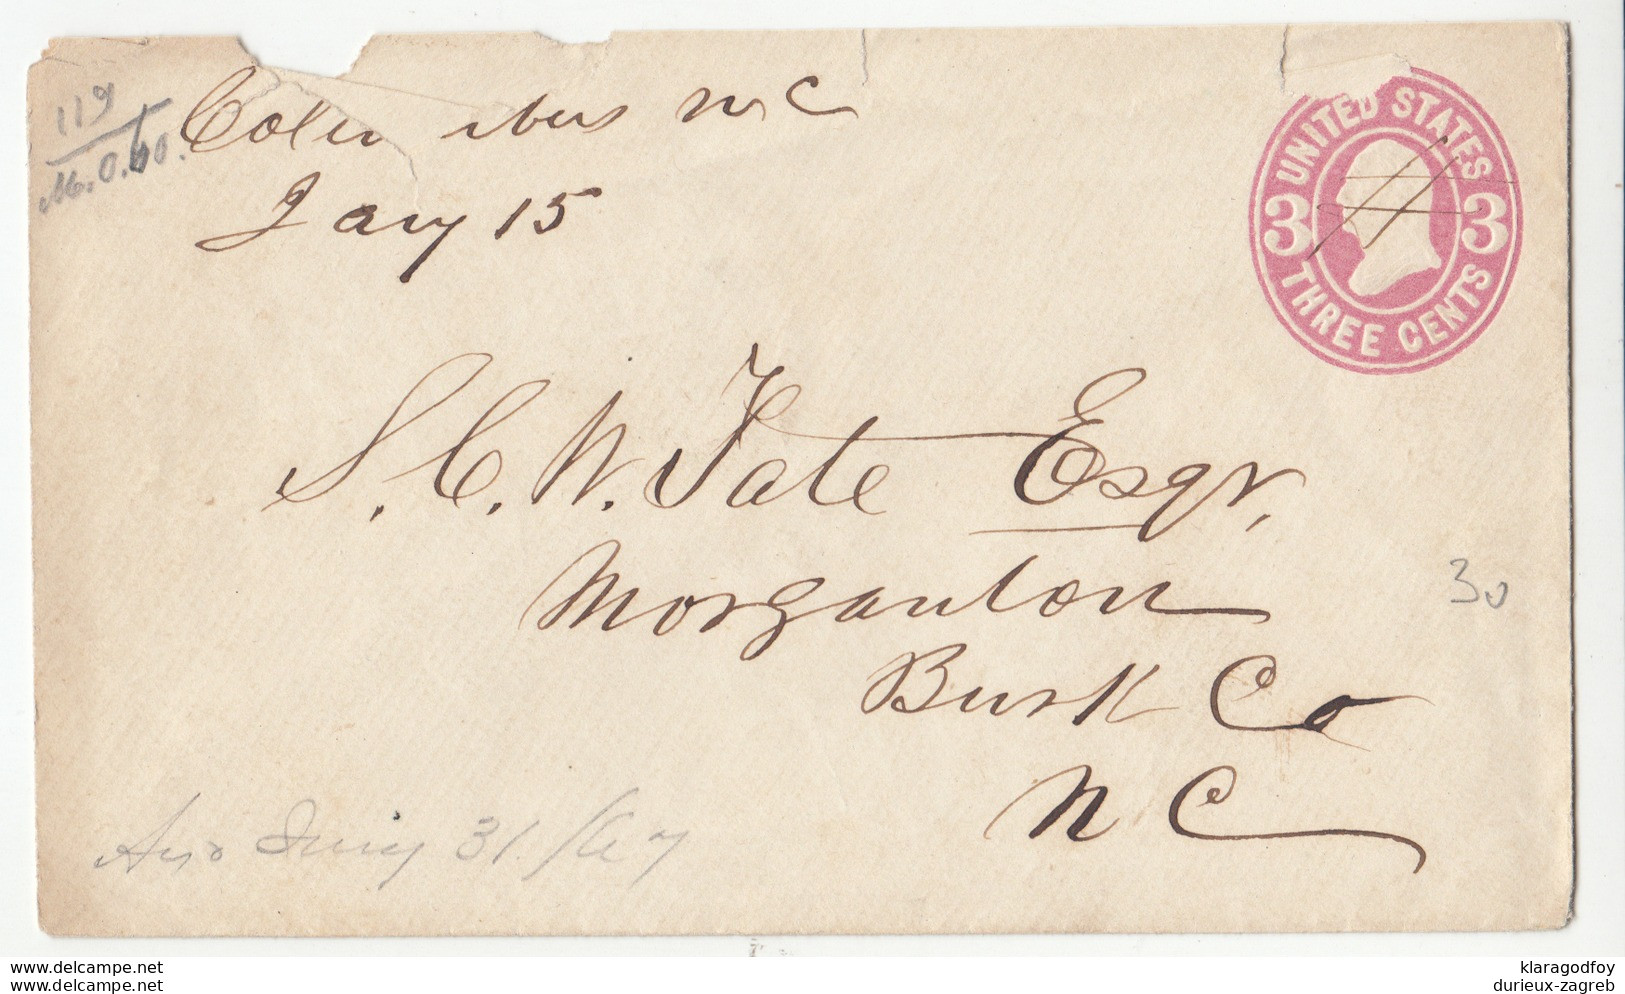 119
M.O.60.
Columbus NC
Jany 15
UNITED STATES
3 3
THREE CENTS
S. C. W. Tate Esqr,
Morganton
Burk Co
NC
30
31./67
www.delcampe.net
klaragodfoy
durieux-zagreb